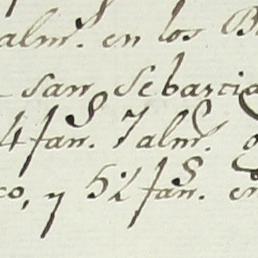 almˢ. en los B
San Sebastia
4 fanˢ. 7 almˢ.
co, y 52 fanˢ. en